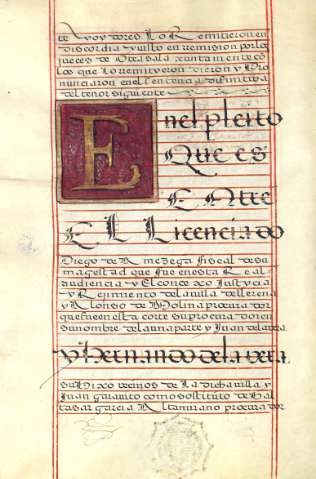 te Ayoydores Lo Remitieron en
discordia y visto en remision por los
jueces de Otra sala xuntamente co
los que Lo remityeron dieron y Pro
nunciaron en el sentencia difinitiva
del tenor siguiente
En el pleito
Que es
Entre
El Licenciado
Diego de Amezaga fiscal de su
magestad que fue en esta Real
audiencia y El concexo Justycia
y Regimiento de la villa de
y Alonso de Molina procurador
que fue en esta corte su procurador en
su nombre de la una parte y Juan de la vera
y Hernando de la vera
su Hixo vecinos de La dicha villa y
Juan garavito como sostituto de bal
tasar garcia Altamirano procurador